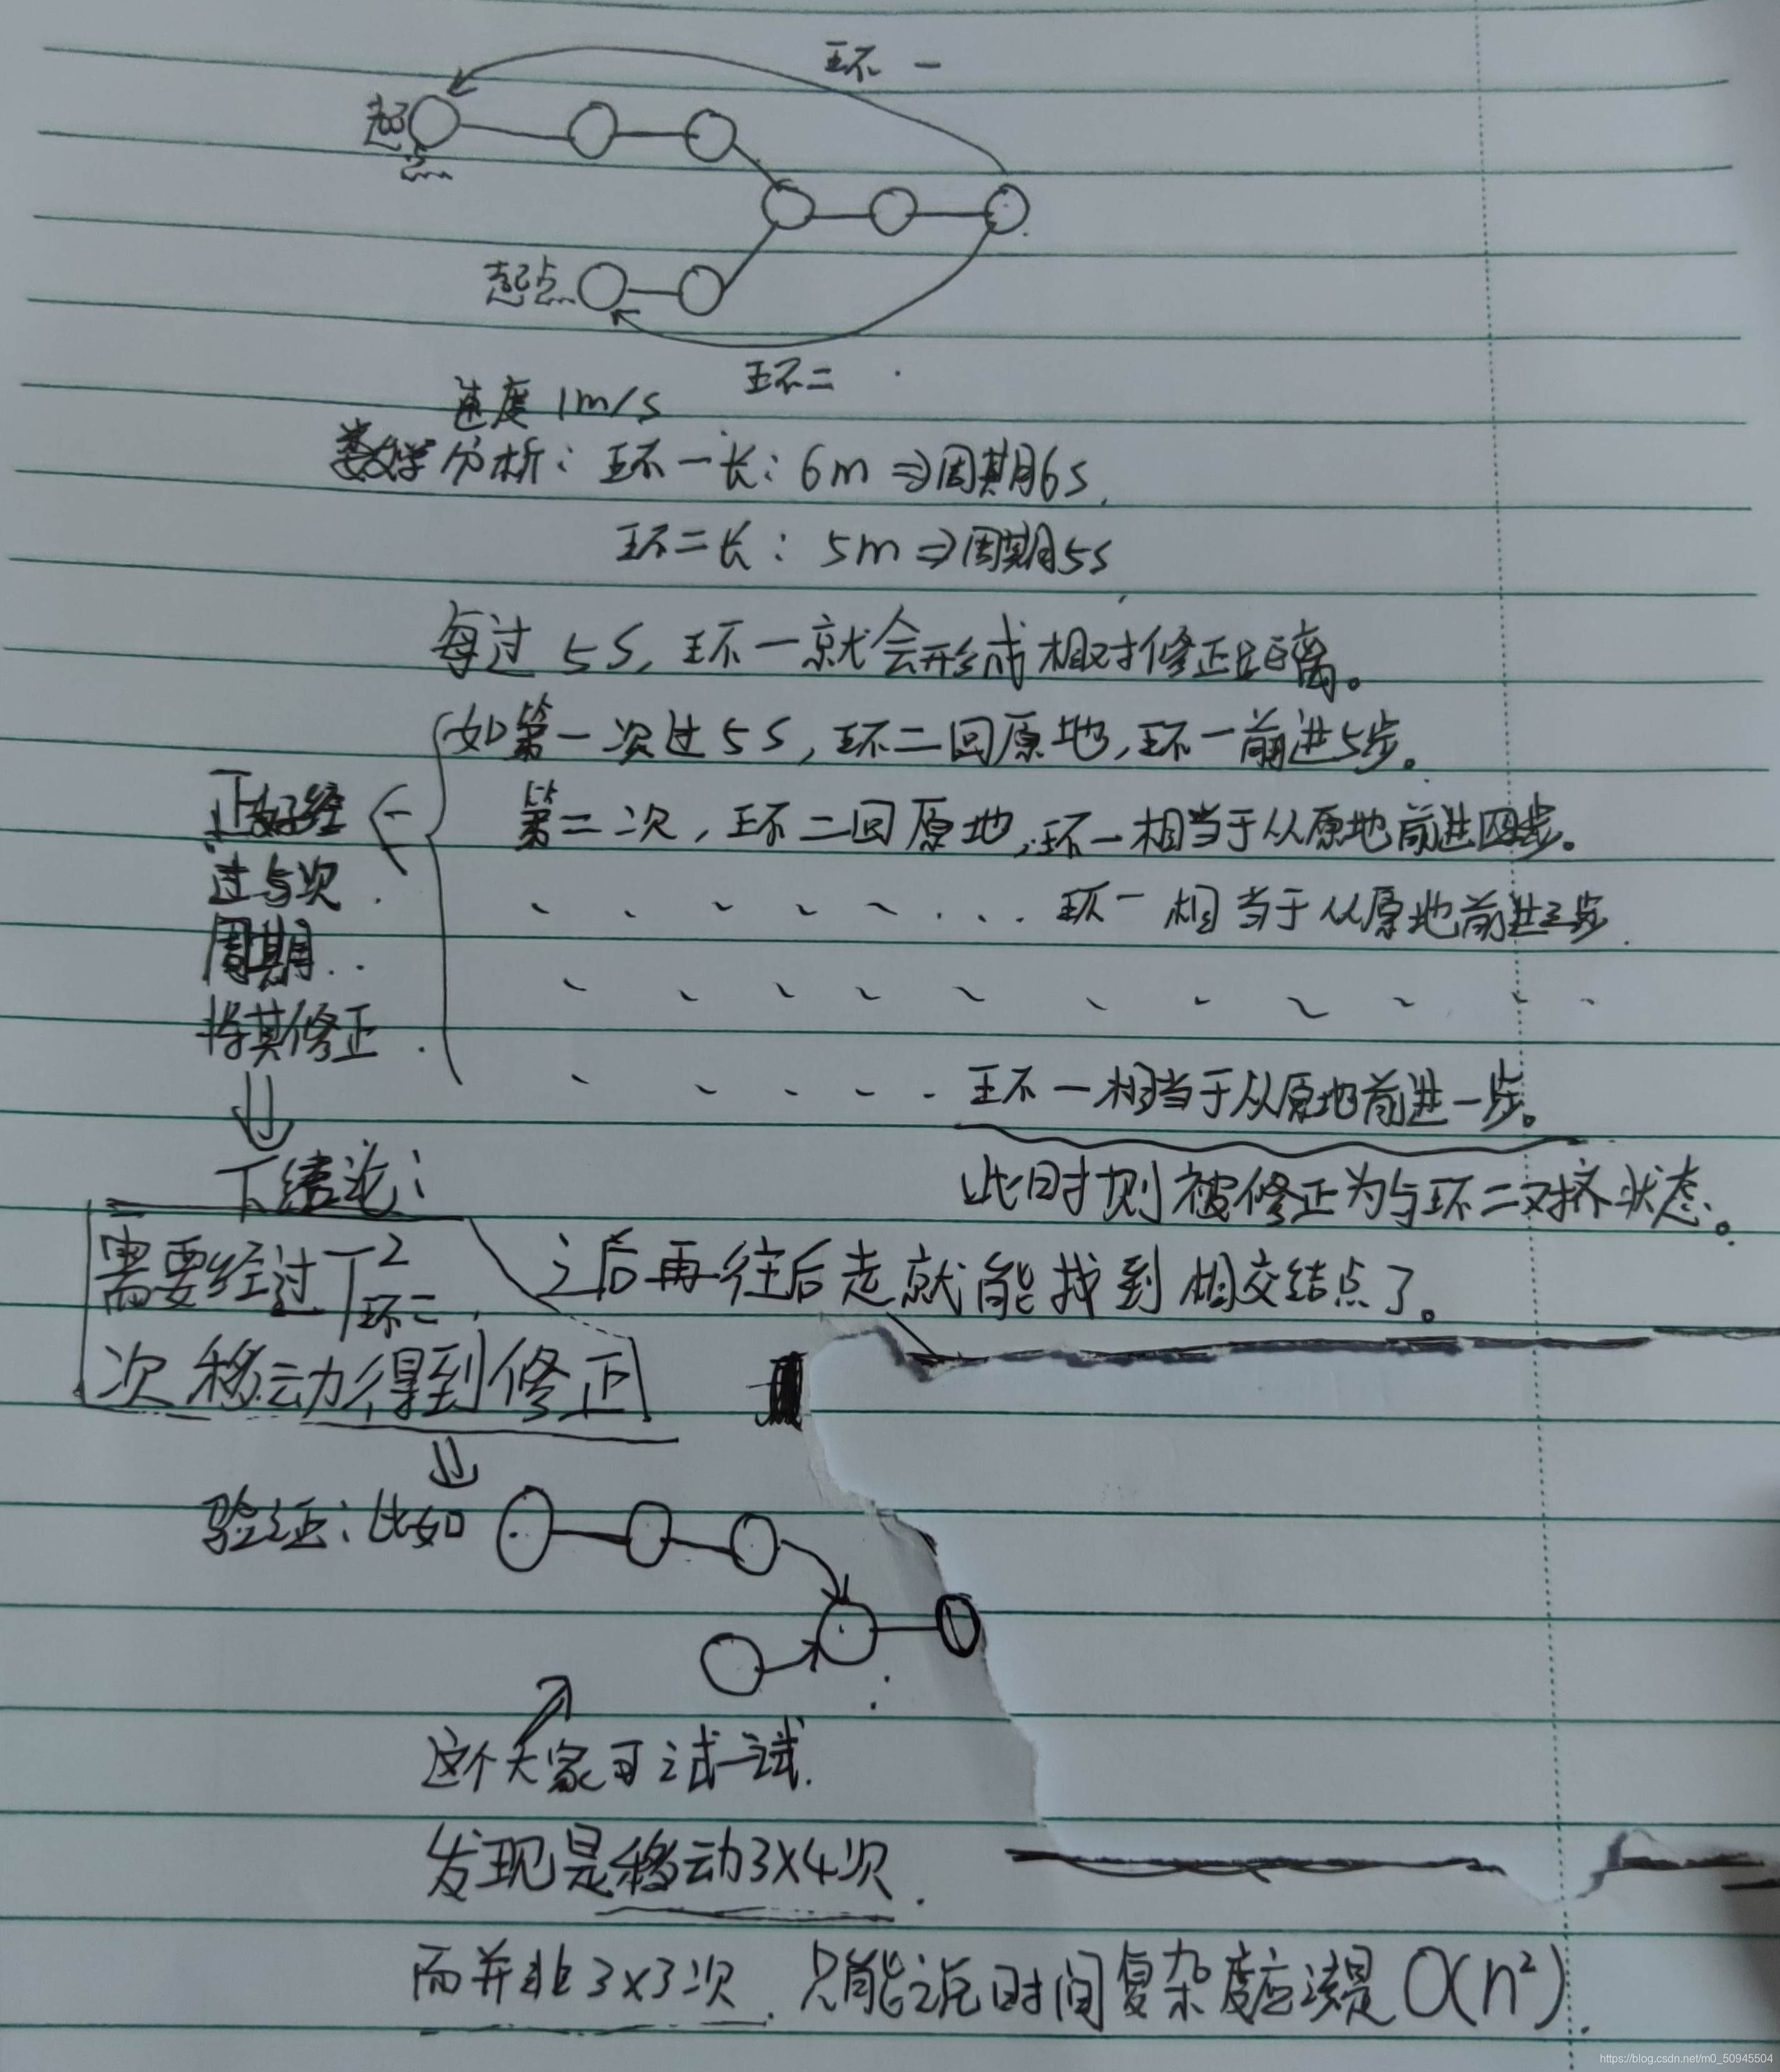 环一
起点
起点
环二
速度 1m/s
数学分析：环一长：6m ⇒周期6s.
环二长：5m ⇒周期5s
每过 5S, 环一就会形成相对修正距离。
如第一次过5S, 环二回原地, 环一前进5步。
第二次, 环二回原地, 环一相当于从原地前进四步。
... 环一相当于从原地前进三步.
环一相当于从原地前进一步。
正好经
过5次.
周期..
将其修正.
此时则被修正为与环二对齐状态。
之后再往后走就能找到相交结点了。
下结论：
需要经过T²环二
次移动得到修正
验证：比如
这个大家可试一试.
发现是移动3×4次.
而并非3×3次. 只能说时间复杂度应该是 O(n²).
https://blog.csdn.net/m0_50945504